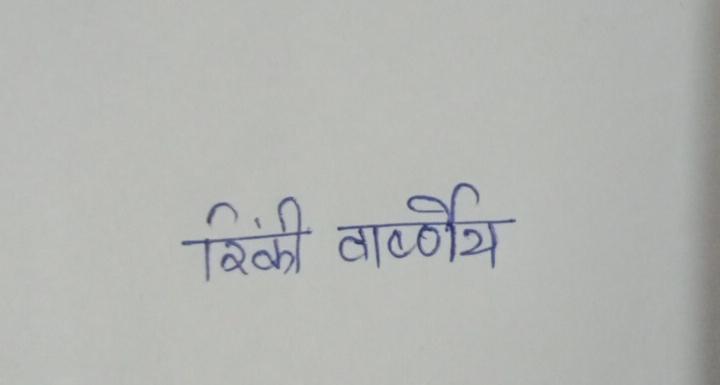 रिंकी वार्ष्णेय